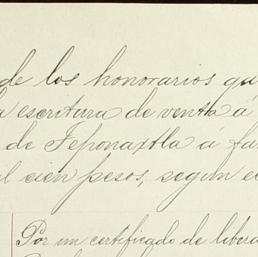 de los honorarios qu
a escritura de venta á
de Teponaxtla á fa
il cien pesos, segun e
Por un certificado de libera